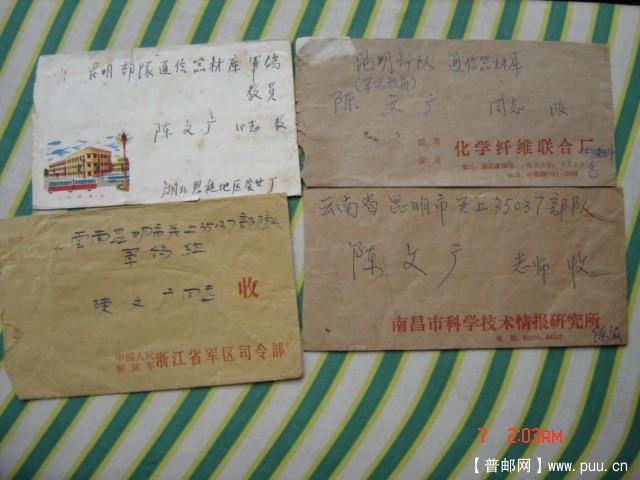 昆明部隊通信器材库軍鴿
教員
陈文广同志收
湖北恩施地区
昆明部队通信器材库
(军鸽教员)
陈文广同志收
国营
化学纤维联合厂
雲南昆明市关上35037部隊
軍鸽组
陳文广同志
收
中国人民
解放军
浙江省军区司令部
云南省昆明市关上35037部队
陈文广老师收
南昌市科学技术情报研究所
陈诚
7 2:03AM
【普邮网】www.puu.cn